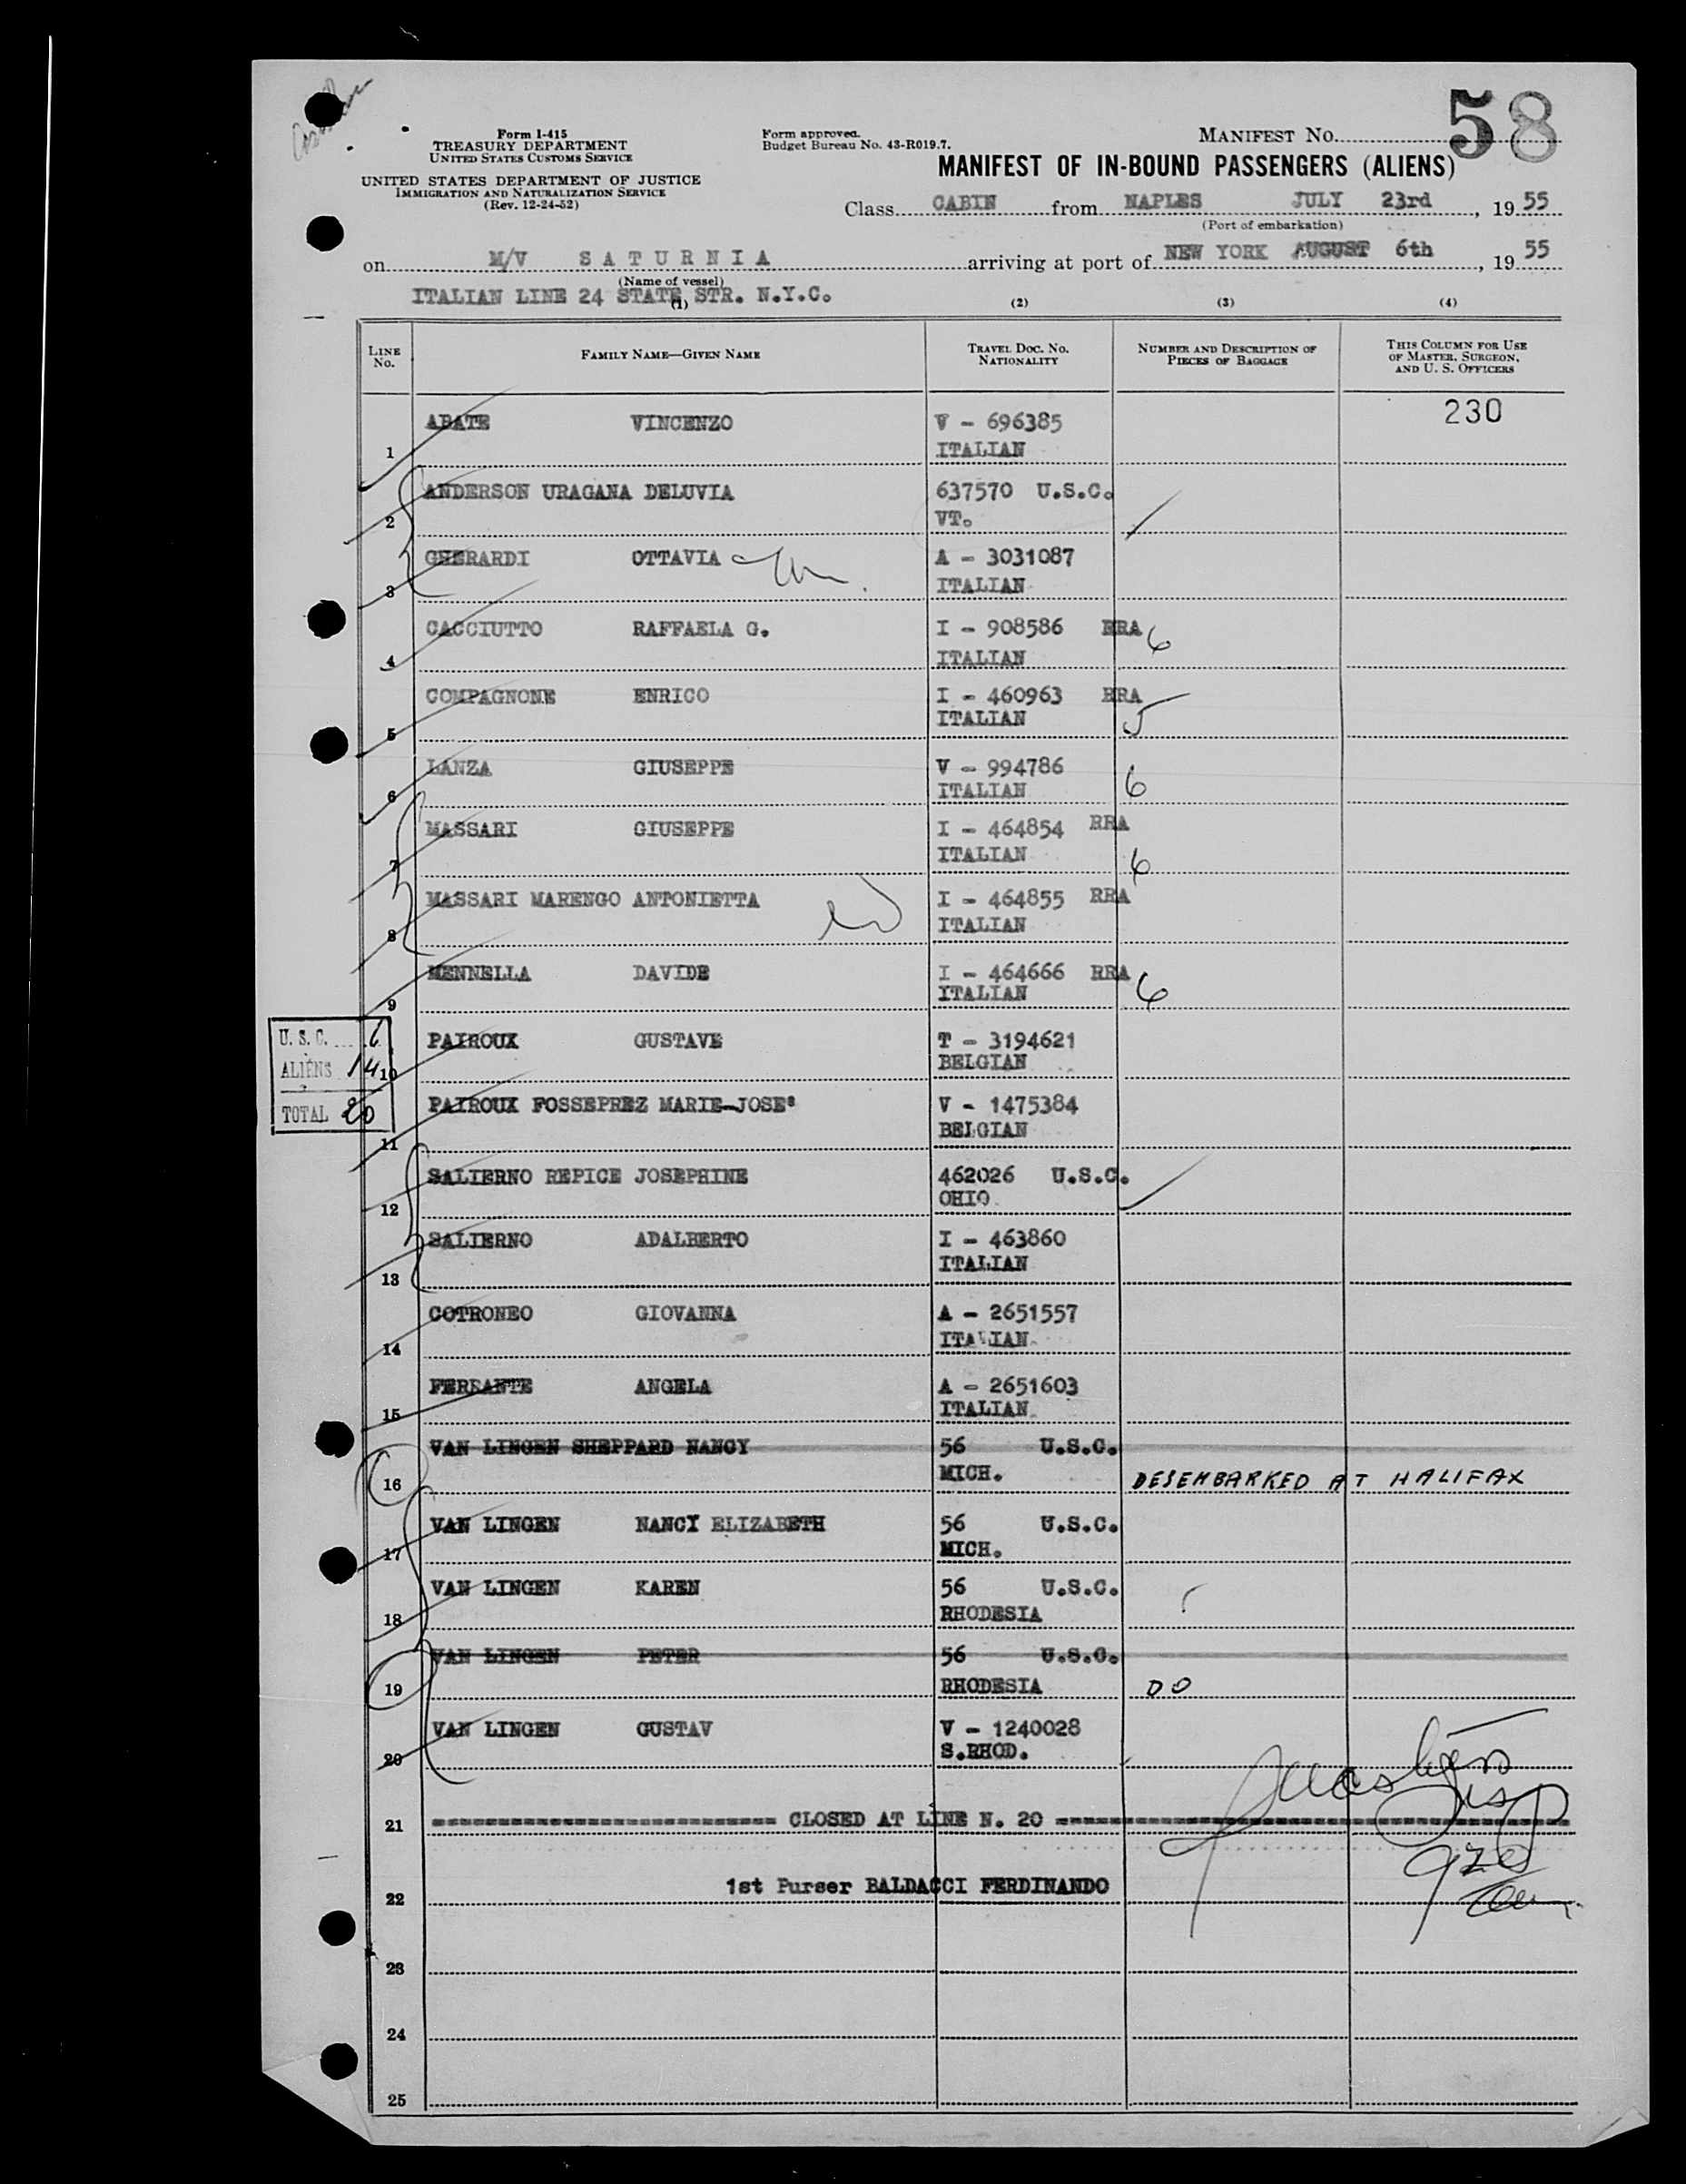 58
Form I-415
TREASURY DEPARTMENT
UNITED STATES CUSTOMS SERVICE
UNITED STATES DEPARTMENT OF JUSTICE
IMMIGRATION AND NATURALIZATION SERVICE
(Rev. 12-24-52)
Form approved.
Budget Bureau No. 43-R019.7.
MANIFEST NO.
MANIFEST OF IN-BOUND PASSENGERS (ALIENS)
Class CABIN from NAPLES JULY 23rd, 1955
(Port of embarkation)
on M/V SATURNIA arriving at port of NEW YORK AUGUST 6th, 1955
(Name of vessel)
ITALIAN LINE 24 STATE STR. N.Y.C.
(1) (2) (3) (4)
LINE NO. FAMILY NAME—GIVEN NAME TRAVEL DOC. NO. NATIONALITY NUMBER AND DESCRIPTION OF PIECES OF BAGGAGE THIS COLUMN FOR USE OF MASTER, SURGEON, AND U. S. OFFICERS
ABATE VINCENZO V - 696385 230
1 ITALIAN
ANDERSON URAGANA DELUVIA 637570 U.S.C.
2 VT.
GHERARDI OTTAVIA A - 3031087
3 ITALIAN
CACCIUTTO RAFFAELA G. I - 908586 RRA 6
4 ITALIAN
COMPAGNONE ENRICO I - 460963 RRA
5 ITALIAN 5
LANZA GIUSEPPE V - 994786
6 ITALIAN 6
MASSARI GIUSEPPE I - 464854 RRA
7 ITALIAN 6
MASSARI MARENGO ANTONIETTA I - 464855 RRA
8 ITALIAN
MENNELLA DAVIDE I - 464666 RRA
9 ITALIAN 6
U. S. C. 6
ALIENS 14
TOTAL 20
PAIROUX GUSTAVE T - 3194621
10 BELGIAN
PAIROUX FOSSEPREZ MARIE-JOSE' V - 1475384
11 BELGIAN
SALIERNO REPICE JOSEPHINE 462026 U.S.C.
12 OHIO
SALIERNO ADALBERTO I - 463860
13 ITALIAN
COTRONEO GIOVANNA A - 2651557
14 ITALIAN
FERRANTE ANGELA A - 2651603
15 ITALIAN
VAN LINGEN SHEPPARD NANCY 56 U.S.C.
16 MICH. DESEMBARKED AT HALIFAX
VAN LINGEN NANCY ELIZABETH 56 U.S.C.
17 MICH.
VAN LINGEN KAREN 56 U.S.C.
18 RHODESIA
VAN LINGEN PETER 56 U.S.C.
19 RHODESIA DO
VAN LINGEN GUSTAV V - 1240028
20 S.RHOD.
21 CLOSED AT LINE N. 20
22 1st Purser BALDACCI FERDINANDO
23
24
25